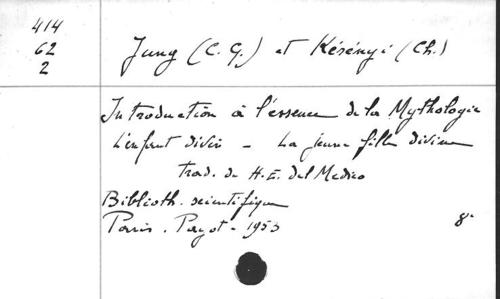 414
62
2
Jung (C. G.) et Kérényi (Ch.)
Introduction à l'essence de la Mythologie
L'enfant divin - La jeune fille divine
trad. de H. E. Del Medico
Biblioth. scientifique
Paris. Payot - 1953
8°